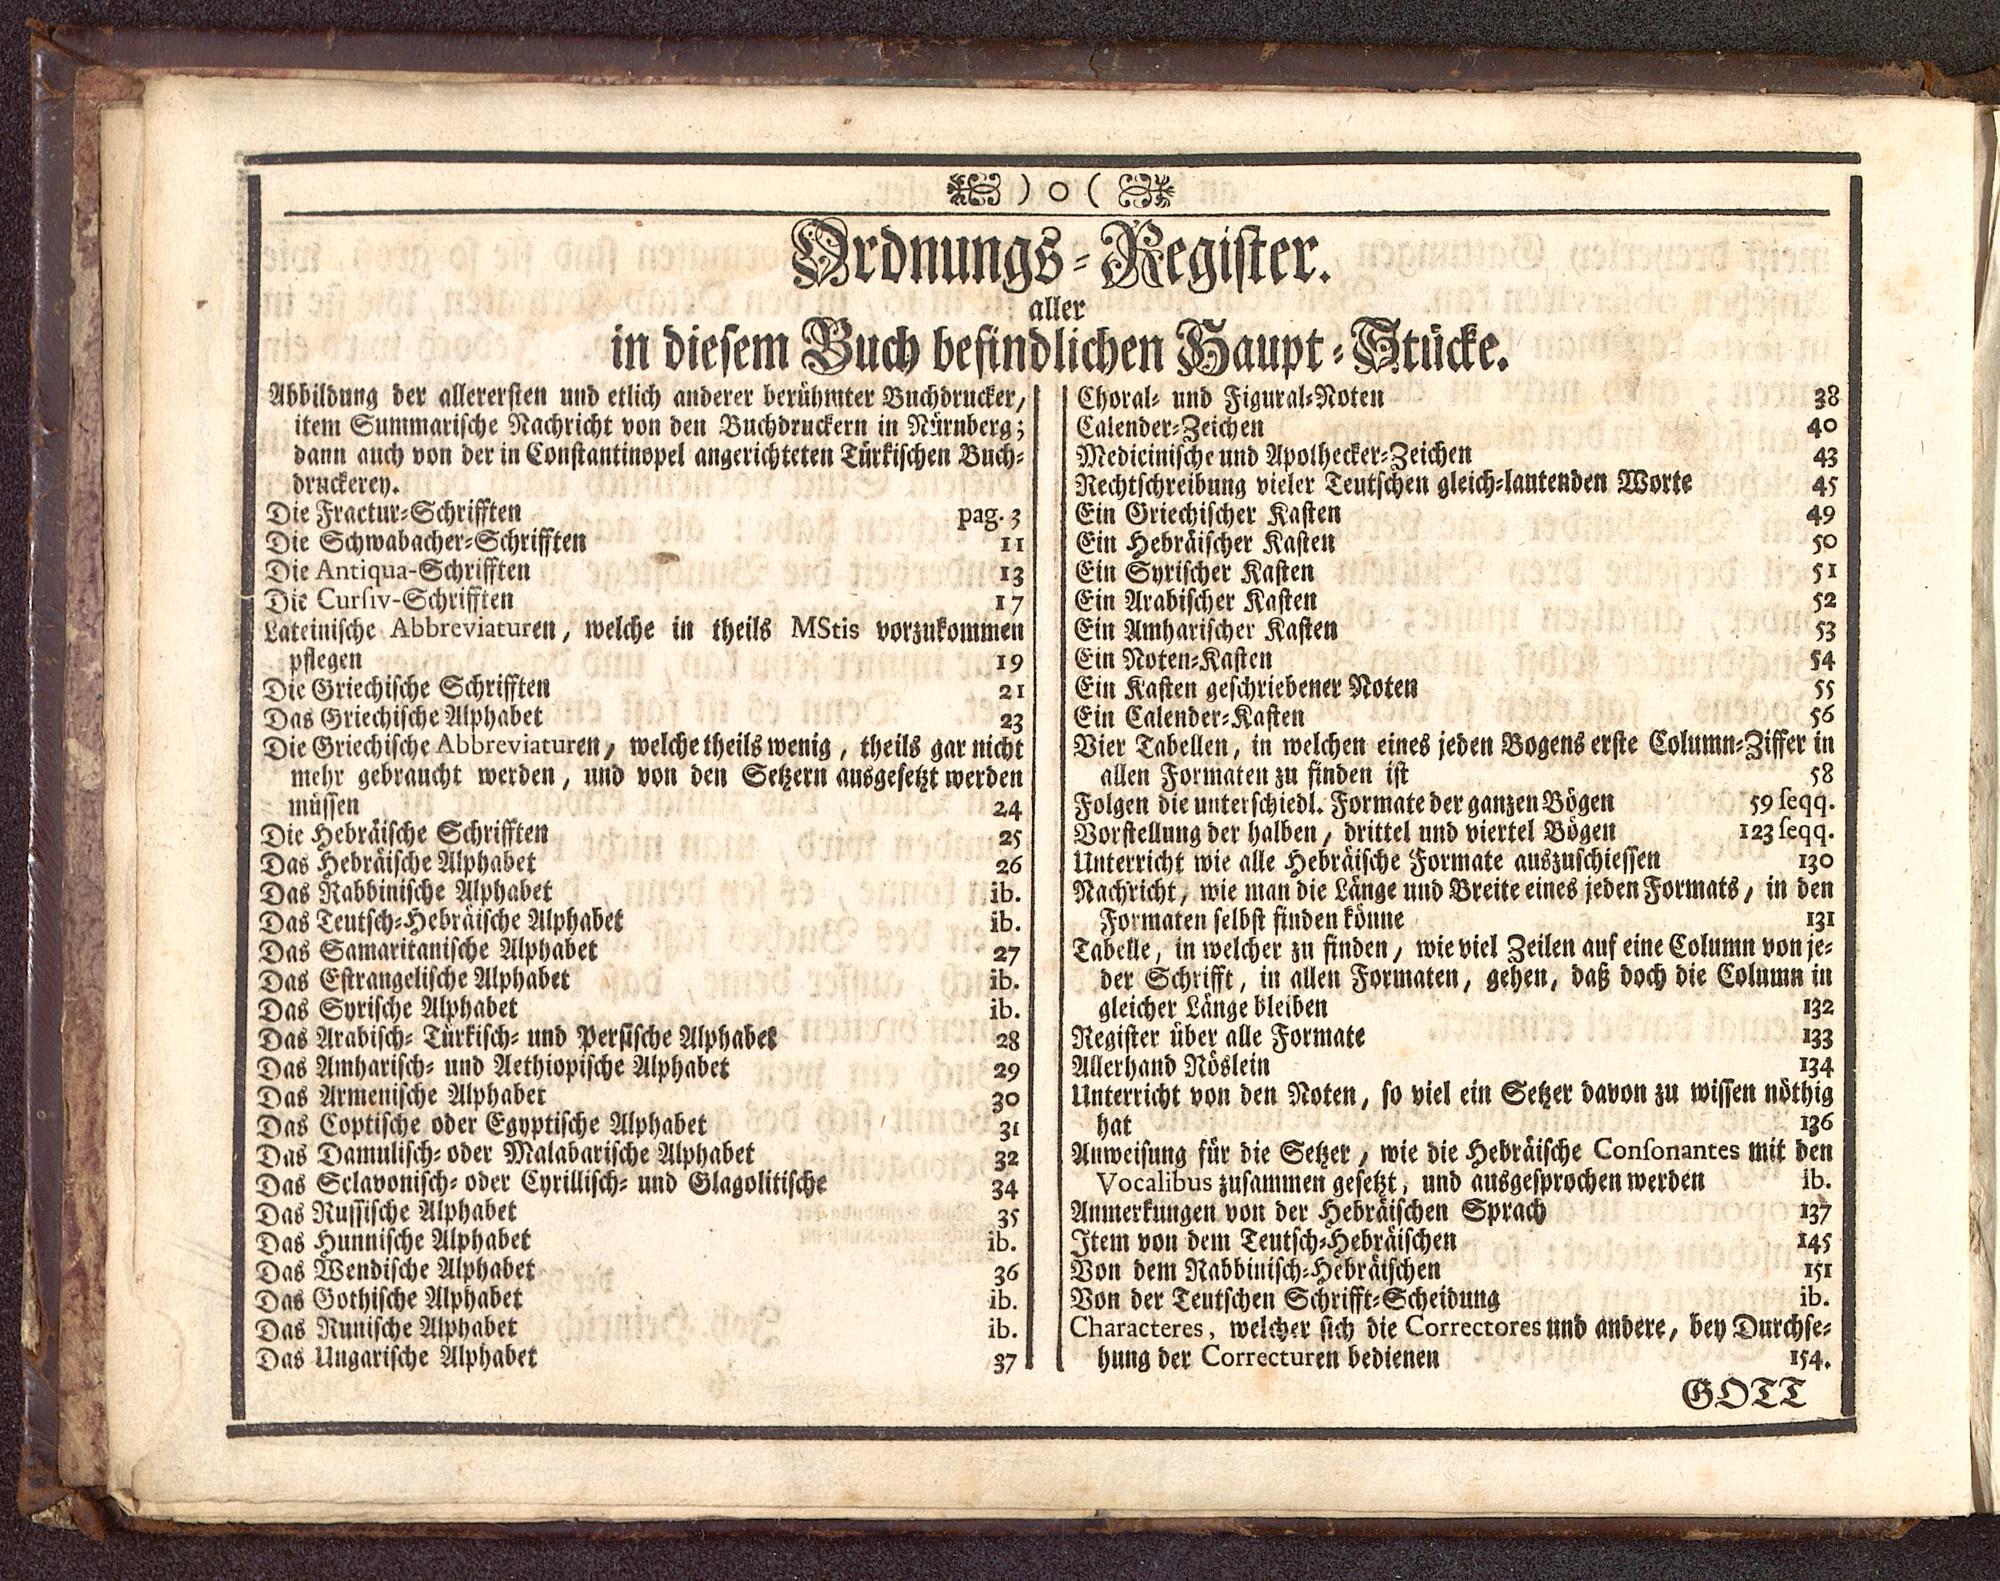 ) o (
Ordnungs-Register.
aller
in diesem Buch befindlichen Haupt-Stücke.
Abbildung der allerersten und etlich anderer berühmter Buchdrucker,
item Summarische Nachricht von den Buchdruckern in Nürnberg;
dann auch von der in Constantinopel angerichteten Türkischen Buch-
druckerey.
Die Fractur-Schrifften pag. 3
Die Schwabacher-Schrifften 11
Die Antiqua-Schrifften 13
Die Cursiv-Schrifften 17
Lateinische Abbreviaturen, welche in theils MStis vorzukommen
pflegen 19
Die Griechische Schrifften 21
Das Griechische Alphabet 23
Die Griechische Abbreviaturen, welche theils wenig, theils gar nicht
mehr gebraucht werden, und von den Setzern ausgesetzt werden
müssen 24
Die Hebräische Schrifften 25
Das Hebräische Alphabet 26
Das Rabbinische Alphabet ib.
Das Teutsch-Hebräische Alphabet ib.
Das Samaritanische Alphabet 27
Das Estrangelische Alphabet ib.
Das Syrische Alphabet ib.
Das Arabisch- Türkisch- und Persische Alphabet 28
Das Amharisch- und Aethiopische Alphabet 29
Das Armenische Alphabet 30
Das Coptische oder Egyptische Alphabet 31
Das Damulisch- oder Malabarische Alphabet 32
Das Sclavonisch- oder Cyrillisch- und Glagolitische 34
Das Russische Alphabet 35
Das Hunnische Alphabet ib.
Das Wendische Alphabet 36
Das Gothische Alphabet ib.
Das Runische Alphabet ib.
Das Ungarische Alphabet 37
Choral- und Figural-Noten 38
Calender-Zeichen 40
Medicinische und Apothecker-Zeichen 43
Rechtschreibung vieler Teutschen gleich-lautenden Worte 45
Ein Griechischer Kasten 49
Ein Hebräischer Kasten 50
Ein Syrischer Kasten 51
Ein Arabischer Kasten 52
Ein Amharischer Kasten 53
Ein Noten-Kasten 54
Ein Kasten geschriebener Noten 55
Ein Calender-Kasten 56
Vier Tabellen, in welchen eines jeden Bogens erste Column-Ziffer in
allen Formaten zu finden ist 58
Folgen die unterschiedl. Formate der ganzen Bögen 59 seqq.
Vorstellung der halben, drittel und viertel Bögen 123 seqq.
Unterricht wie alle Hebräische Formate auszuschiessen 130
Nachricht, wie man die Länge und Breite eines jeden Formats, in den
Formaten selbst finden könne 131
Tabelle, in welcher zu finden, wie viel Zeilen auf eine Column von je-
der Schrifft, in allen Formaten, gehen, daß doch die Column in
gleicher Länge bleiben 132
Register über alle Formate 133
Allerhand Röslein 134
Unterricht von den Noten, so viel ein Setzer davon zu wissen nöthig
hat 136
Anweisung für die Setzer, wie die Hebräische Consonantes mit den
Vocalibus zusammen gesetzt, und ausgesprochen werden ib.
Anmerkungen von der Hebräischen Sprach 137
Item von dem Teutsch-Hebräischen 145
Von dem Rabbinisch-Hebräischen 151
Von der Teutschen Schrifft-Scheidung ib.
Characteres, welcher sich die Correctores und andere, bey Durchse-
hung der Correcturen bedienen 154.
GOTT